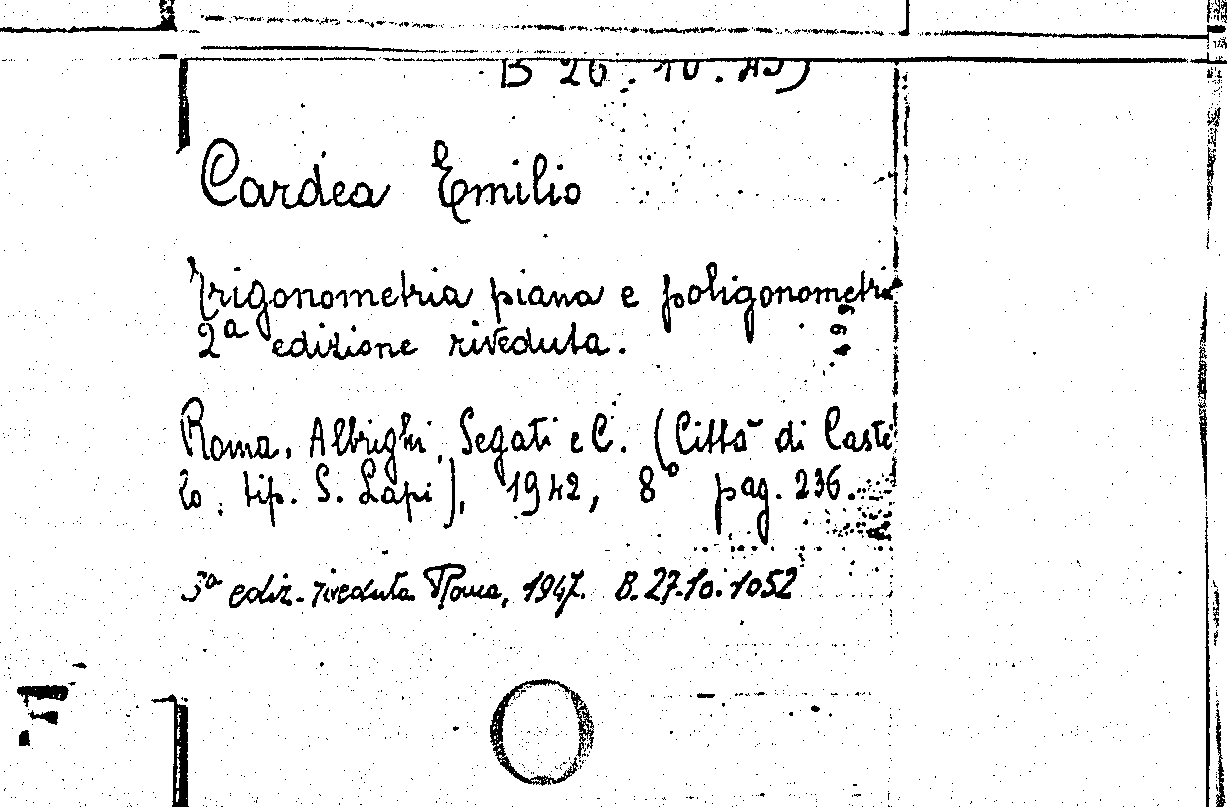 B 26.10.45)
Cardea Emilio
Trigonometria piana e poligonometri
2ª edizione riveduta.
Roma. Albrighi, Segati e C. (Città di Caste
lo, tip. S. Lapi), 1942, 8° pag. 236.
3ª ediz. riveduta Roma, 1947. B. 27.10.1052